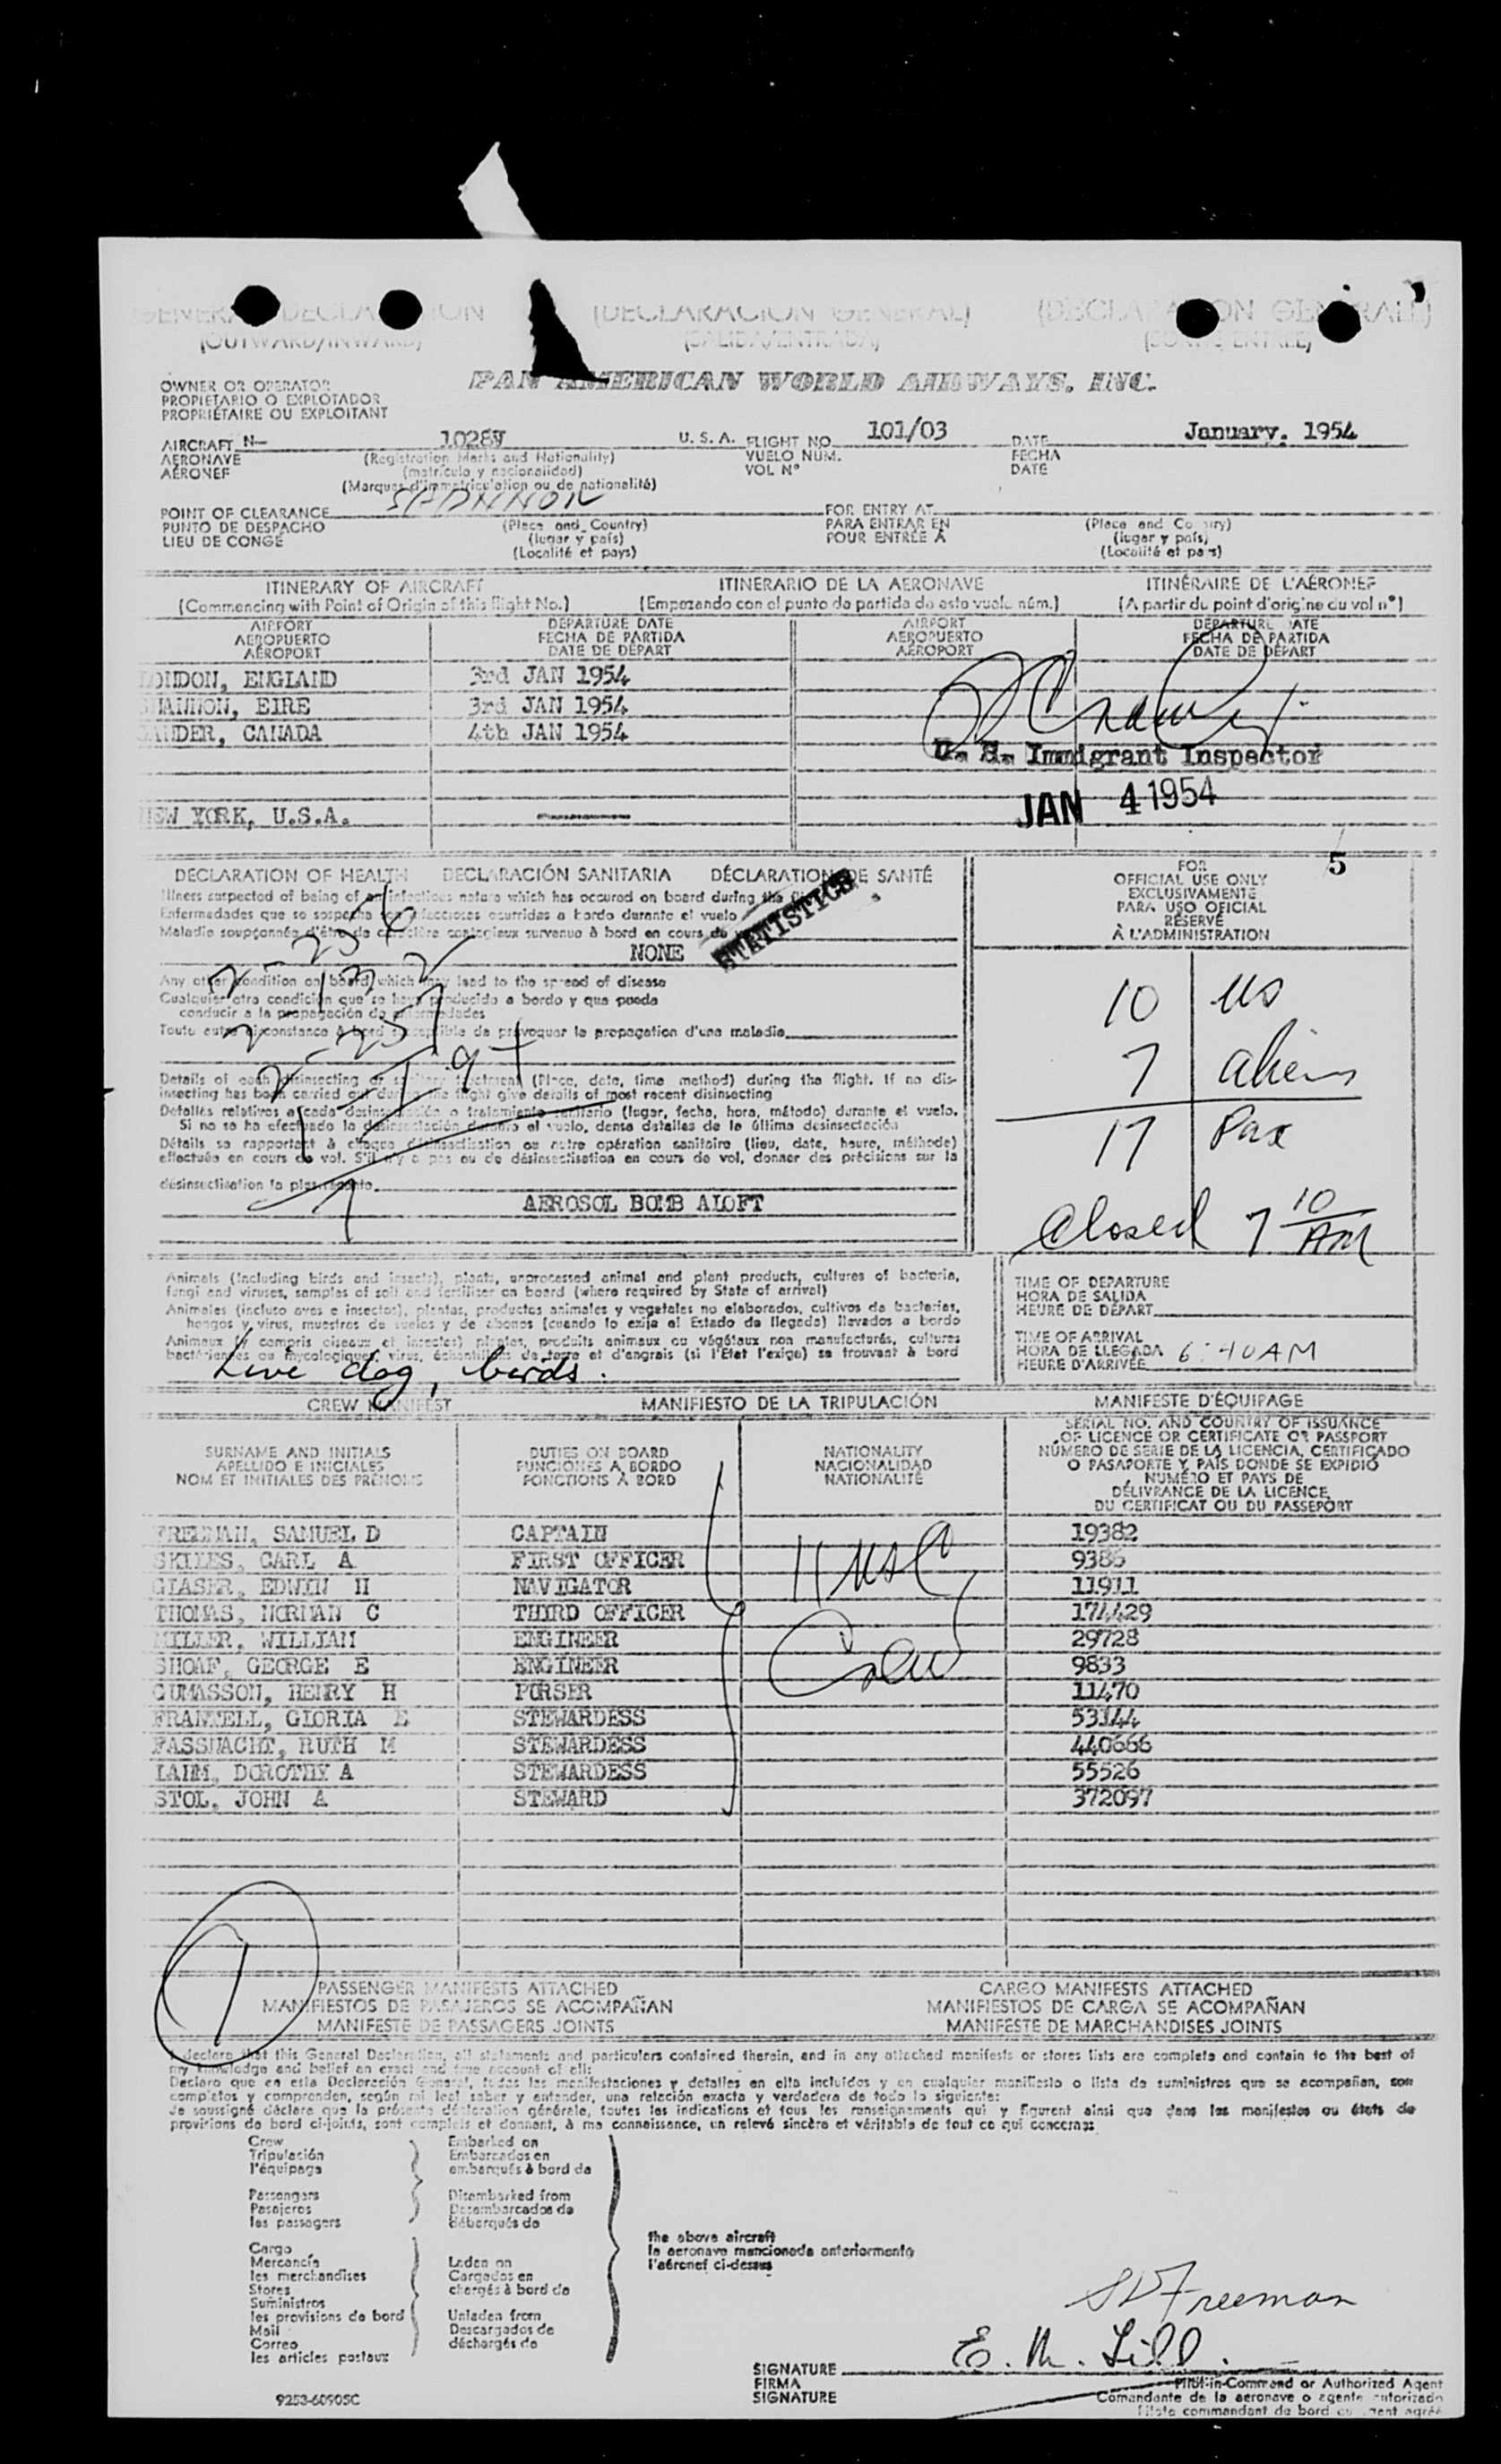 GENERAL DECLARATION (DECLARACION GENERAL) (DECLARATION GENERALE)
(OUTWARD/INWARD) (SALIDA/ENTRADA)
OWNER OR OPERATOR
PROPIETARIO O EXPLOTADOR
PROPRIÉTAIRE OU EXPLOITANT
PAN AMERICAN WORLD AIRWAYS, INC.
AIRCRAFT N- 1028V U. S. A. FLIGHT NO. 101/03 DATE January. 1954
AERONAVE (Registration Marks and Nationality) VUELO NUM. FECHA
AÉRONEF (matrícula y nacionalidad) VOL N° DATE
(Marques d'immatriculation ou de nationalité)
POINT OF CLEARANCE SHANNON FOR ENTRY AT
PUNTO DE DESPACHO (Place and Country) PARA ENTRAR EN (Place and Country)
LIEU DE CONGÉ (lugar y país) POUR ENTRÉE À (lugar y país)
(Localité et pays) (Localité et pays)
ITINERARY OF AIRCRAFT ITINERARIO DE LA AERONAVE ITINÉRAIRE DE L'AÉRONEF
(Commencing with Point of Origin of this flight No.) (Empezando con el punto de partida de este vuelo núm.) (A partir du point d'origine du vol n°)
AIRPORT DEPARTURE DATE AIRPORT DEPARTURE DATE
AEROPUERTO FECHA DE PARTIDA AEROPUERTO FECHA DE PARTIDA
AÉROPORT DATE DE DÉPART AÉROPORT DATE DE DÉPART
LONDON, ENGLAND 3rd JAN 1954
SHANNON, EIRE 3rd JAN 1954
GANDER, CANADA 4th JAN 1954
U. S. Immigrant Inspector
JAN 4 1954
NEW YORK, U.S.A.
5
DECLARATION OF HEALTH DECLARACIÓN SANITARIA DÉCLARATION DE SANTÉ
Illness suspected of being of an infectious nature which has occured on board during the flight
Enfermedades que se sospecha son infecciosas ocurridas a bordo durante el vuelo
Maladie soupçonnée d'être de caractère contagieux survenue à bord en cours du
STATISTICS
NONE
Any other condition on board which may lead to the spread of disease
Cualquier otra condición que se haya producido a bordo y que pueda
conducir a la propagación de enfermedades
Toute autre circonstance à bord susceptible de provoquer la propagation d'une maladie
Details of each disinsecting or sanitary treatment (Place, date, time method) during the flight. If no dis-
insecting has been carried out during the flight give details of most recent disinsecting
Detalles relativos a cada desinsectación o tratamiento sanitario (lugar, fecha, hora, método) durante el vuelo.
Si no se ha efectuado la desinsectación durante el vuelo, dense detalles de la última desinsectación
Détails se rapportant à chaque désinsectisation ou autre opération sanitaire (lieu, date, heure, méthode)
effectuée en cours de vol. S'il n'y a pas eu de désinsectisation en cours de vol, donner des précisions sur la
désinsectisation la plus récente
AEROSOL BOMB ALOFT
FOR
OFFICIAL USE ONLY
EXCLUSIVAMENTE
PARA USO OFICIAL
RÉSERVÉ
À L'ADMINISTRATION
10 US
7 aliens
17 Pax
Closed 7 10 AM
Animals (including birds and insects), plants, unprocessed animal and plant products, cultures of bacteria,
fungi and viruses, samples of soil and fertiliser on board (where required by State of arrival)
Animales (incluso aves e insectos), plantas, productos animales y vegetales no elaborados, cultivos de bacterias,
hongos y virus, muestras de suelos y de abonos (cuando lo exija el Estado de llegada) llevados a bordo
Animaux (y compris oiseaux et insectes) plantes, produits animaux ou végétaux non manufacturés, cultures
bactériennes ou mycologiques, virus, échantillons de terre et d'engrais (si l'État l'exige) se trouvant à bord
Live dog, birds.
TIME OF DEPARTURE
HORA DE SALIDA
HEURE DE DÉPART
TIME OF ARRIVAL
HORA DE LLEGADA 6:40 AM
HEURE D'ARRIVÉE
CREW MANIFEST MANIFIESTO DE LA TRIPULACIÓN MANIFESTE D'ÉQUIPAGE
SURNAME AND INITIALS
APELLIDO E INICIALES
NOM ET INITIALES DES PRÉNOMS
DUTIES ON BOARD
FUNCIONES A BORDO
FONCTIONS À BORD
NATIONALITY
NACIONALIDAD
NATIONALITÉ
SERIAL NO. AND COUNTRY OF ISSUANCE
OF LICENCE OR CERTIFICATE OR PASSPORT
NÚMERO DE SERIE DE LA LICENCIA, CERTIFICADO
O PASAPORTE Y PAÍS DONDE SE EXPIDIÓ
NUMÉRO ET PAYS DE
DÉLIVRANCE DE LA LICENCE,
DU CERTIFICAT OU DU PASSEPORT
FREEMAN, SAMUEL D CAPTAIN 19382
SKILES, CARL A FIRST OFFICER 9385
GLASER, EDWIN H NAVIGATOR 11911
THOMAS, NORMAN C THIRD OFFICER 174429
MILLER, WILLIAM ENGINEER 29728
SHOAF, GEORGE E ENGINEER 9833
GUMASSON, HENRY H PURSER 11470
FRANKELL, GLORIA E STEWARDESS 53144
FASSNACHT, RUTH M STEWARDESS 440666
LAIM, DOROTHY A STEWARDESS 55526
STOL, JOHN A STEWARD 372097
11 USC
Crew
1
PASSENGER MANIFESTS ATTACHED CARGO MANIFESTS ATTACHED
MANIFIESTOS DE PASAJEROS SE ACOMPAÑAN MANIFIESTOS DE CARGA SE ACOMPAÑAN
MANIFESTE DE PASSAGERS JOINTS MANIFESTE DE MARCHANDISES JOINTS
I declare that this General Declaration, all statements and particulars contained therein, and in any attached manifests or stores lists are complete and contain to the best of
my knowledge and belief an exact and true account of all:
Declaro que en esta Declaración General, todas las manifestaciones y detalles en ella incluidos y en cualquier manifiesto o lista de suministros que se acompañan, son
completos y comprenden, según mi leal saber y entender, una relación exacta y verdadera de todo lo siguiente:
Je soussigné déclare que la présente déclaration générale, toutes les indications et tous les renseignements qui y figurent ainsi que dans les manifestes ou états de
provisions de bord ci-joints, sont complets et donnent, à ma connaissance, un relevé sincère et véritable de tout ce qui concerne:
Crew Embarked on
Tripulación Embarcados en
l'équipage embarqués à bord de
Passengers Disembarked from
Pasajeros Desembarcados de
les passagers débarqués de
the above aircraft
la aeronave mencionada anteriormente
l'aéronef ci-dessus
Cargo
Mercancía Laden on
les merchandises Cargados en
Stores chargés à bord de
Suministros
les provisions de bord Unladen from
Mail Descargados de
Correo déchargés de
les articles postaux
SD Freeman
E. M. Lill.
SIGNATURE Pilot-in-Command or Authorized Agent
FIRMA Comandante de la aeronave o agente autorizado
SIGNATURE Pilote commandant de bord ou agent agréé
9253-60905C